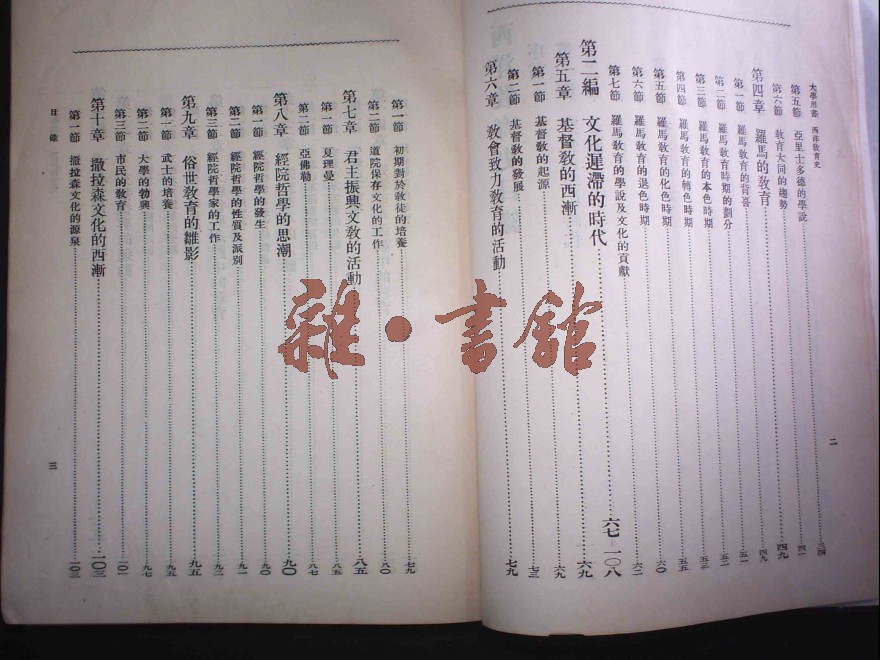 大學用書 西洋教育史
第五節 亞里士多德的學說 三四
第六節 教育大同的趨勢 四一
第四章 羅馬的教育 四九
第一節 羅馬教育的背景 四九
第二節 羅馬教育時期的劃分 五一
第三節 羅馬教育的本色時期 五二
第四節 羅馬教育的轉色時期 五五
第五節 羅馬教育的化色時期 六〇
第六節 羅馬教育的退色時期 六二
第七節 羅馬教育的學說及文化的貢獻
第二編 文化遲滯的時代 六七—一〇八
第五章 基督教的西漸 六九
第一節 基督教的起源 六九
第二節 基督教的發展 七三
第六章 教會致力教育的活動 七九
二
第一節 初期對於教徒的培養 七九
第二節 道院保存文化的工作 八〇
第七章 君王振興文教的活動 八五
第一節 夏理曼 八五
第二節 亞佛勒 八七
第八章 經院哲學的思潮 九〇
第一節 經院哲學的發生 九〇
第二節 經院哲學的性質及派別 九一
第三節 經院哲學家的工作 九二
第九章 俗世教育的雛影 九五
第一節 武士的培養 九五
第二節 大學的勃興 九七
第三節 市民的教育 一〇一
第十章 撒拉森文化的西漸 一〇三
第一節 撒拉森文化的源泉 一〇三
目錄
三
雜·書館